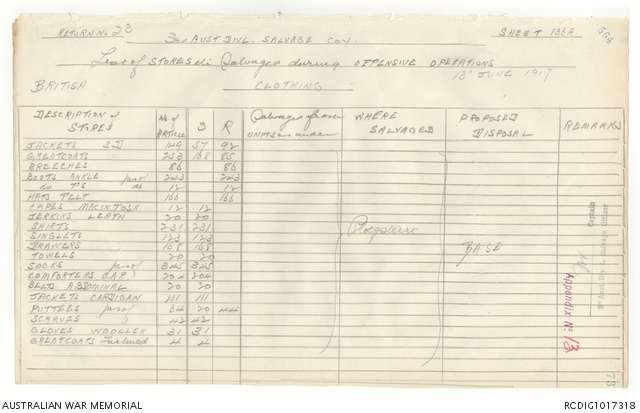 RETURN No. 23 3rd AUST. DIVL. SALVAGE COY. SHEET 136A
List of STORES etc Salvaged during OFFENSIVE OPERATIONS
13th JUNE 1917
BRITISH CLOTHING
DESCRIPTION of STORES No of Articles S R Salvaged from UNITS as under WHERE SALVAGED PROPOSED DISPOSAL REMARKS
JACKETS S.D 149 57 92
GREATCOATS 253 168 85
BREECHES 86 86
BOOTS ANKLE prs 223 223
do T'S do 12 12
HATS FELT 166 166
CAPES MACINTOSH 12 12
JERKINS LEATH' 20 20
SHIRTS 231 231
SINGLETS 123 123
DRAWERS 168 168
TOWELS 20 20
SOCKS prs 325 325
COMFORTERS CAP 204 204
BELTS ABDOMINAL 20 20
JACKETS CARDIGAN 111 111
PUTTEES prs 64 20 44
SCARVES 42 42
GLOVES WOOLLEN 31 31
GREATCOATS 4 4
Ploegsteert
BASE
Captain
3rd Aust. Div. Salvage Officer
Appendix No. 13
73
AUSTRALIAN WAR MEMORIAL RCDIG1017318